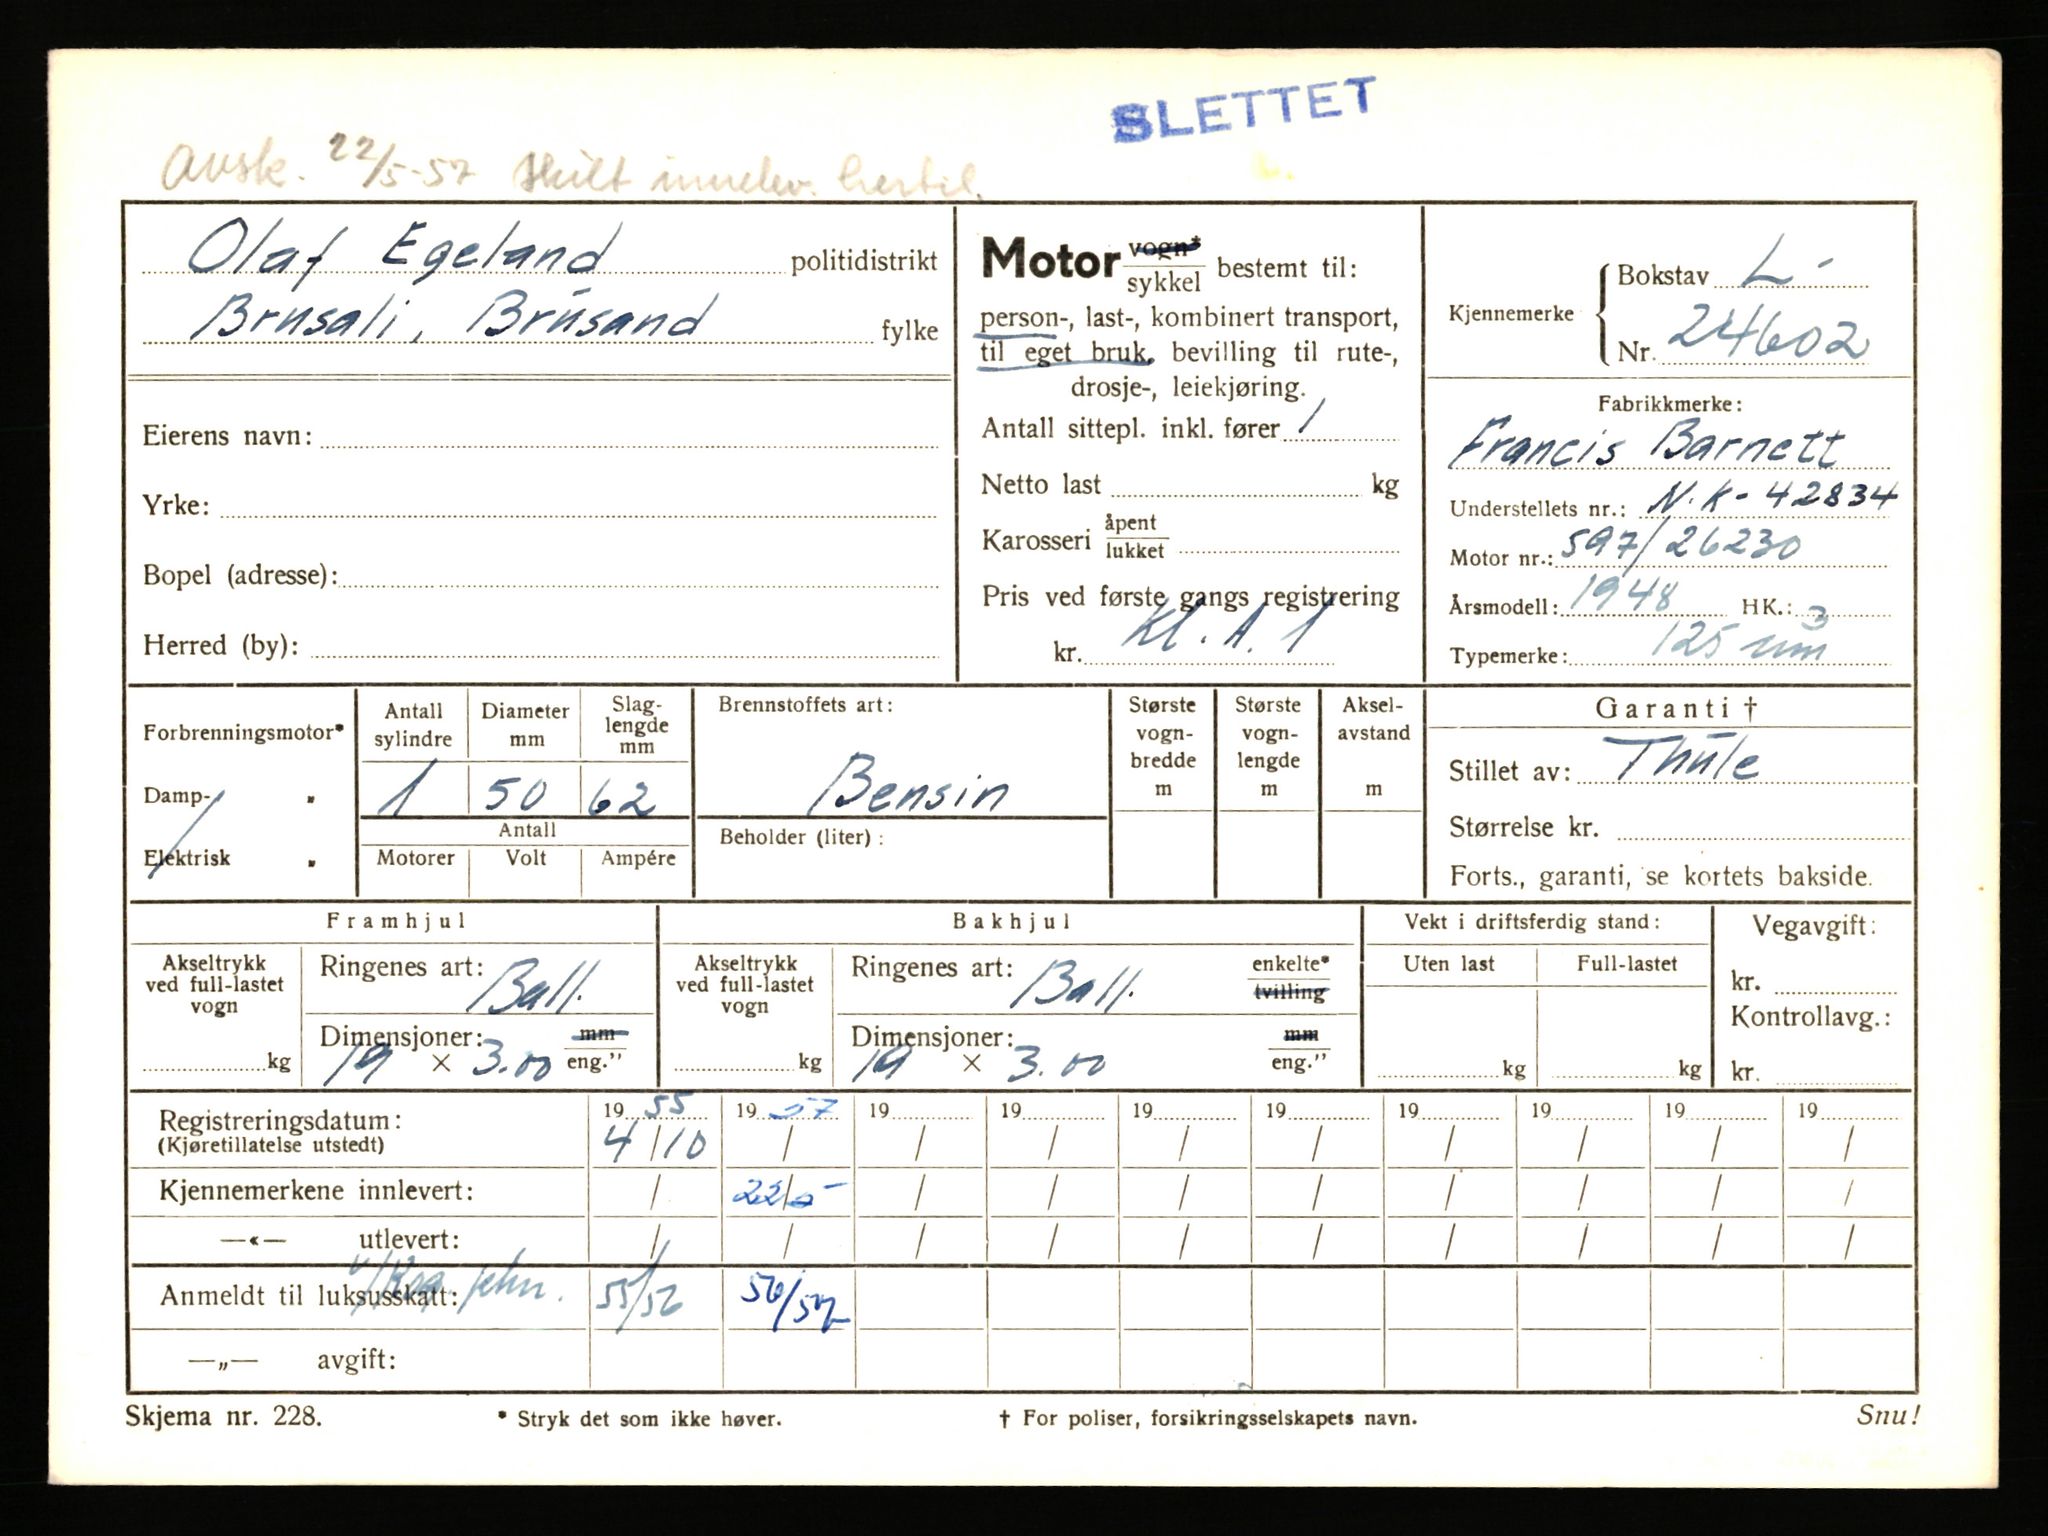 SLETTET
Avsk. 22/5-57 Skilt innlev. hertil.
Olaf Egeland politidistrikt
Brusali, Brusand fylke
Eierens navn:
Yrke:
Bopel (adresse):
Herred (by):
Motor vogn* / sykkel bestemt til:
person-, last-, kombinert transport,
til eget bruk, bevilling til rute-,
drosje-, leiekjøring.
Antall sittepl. inkl. fører 1
Netto last kg
Karosseri åpent / lukket
Pris ved første gangs registrering
kr. Kl. A. 1
Kjennemerke
Bokstav L-
Nr. 24602
Fabrikkmerke:
Francis Barnett
Understellets nr.: N.K- 42834
Motor nr.: 597/26230
Årsmodell: 1948 HK.: 
Typemerke: 125 mm3
Forbrenningsmotor*
Damp- "
Elektrisk "
Antall sylindre Diameter mm Slaglengde mm
1 50 62
Antall
Motorer Volt Ampére
Brennstoffets art:
Bensin
Beholder (liter):
Største vogn-bredde m
Største vogn-lengde m
Aksel-avstand m
Garanti †
Stillet av: Thule
Størrelse kr.
Forts., garanti, se kortets bakside.
Framhjul
Akseltrykk ved full-lastet vogn
kg
Ringenes art: Ball.
Dimensjoner: mm
19 × 3.00 eng."
Bakhjul
Akseltrykk ved full-lastet vogn
kg
Ringenes art: Ball. enkelte* tvilling
Dimensjoner: mm
19 × 3.00 eng."
Vekt i driftsferdig stand:
Uten last Full-lastet
kg kg
Vegavgift:
kr.
Kontrollavg.:
kr.
Registreringsdatum: 19 55 19 57 19 19 19 19 19 19 19 19
(Kjøretillatelse utstedt) 4/10 / / / / / / / / /
Kjennemerkene innlevert: / 22/5 / / / / / / / /
—«— utlevert: / / / / / / / / / /
Anmeldt til luksusskatt: 55/56 56/57
—„— avgift:
Skjema nr. 228. * Stryk det som ikke høver. † For poliser, forsikringsselskapets navn. Snu!